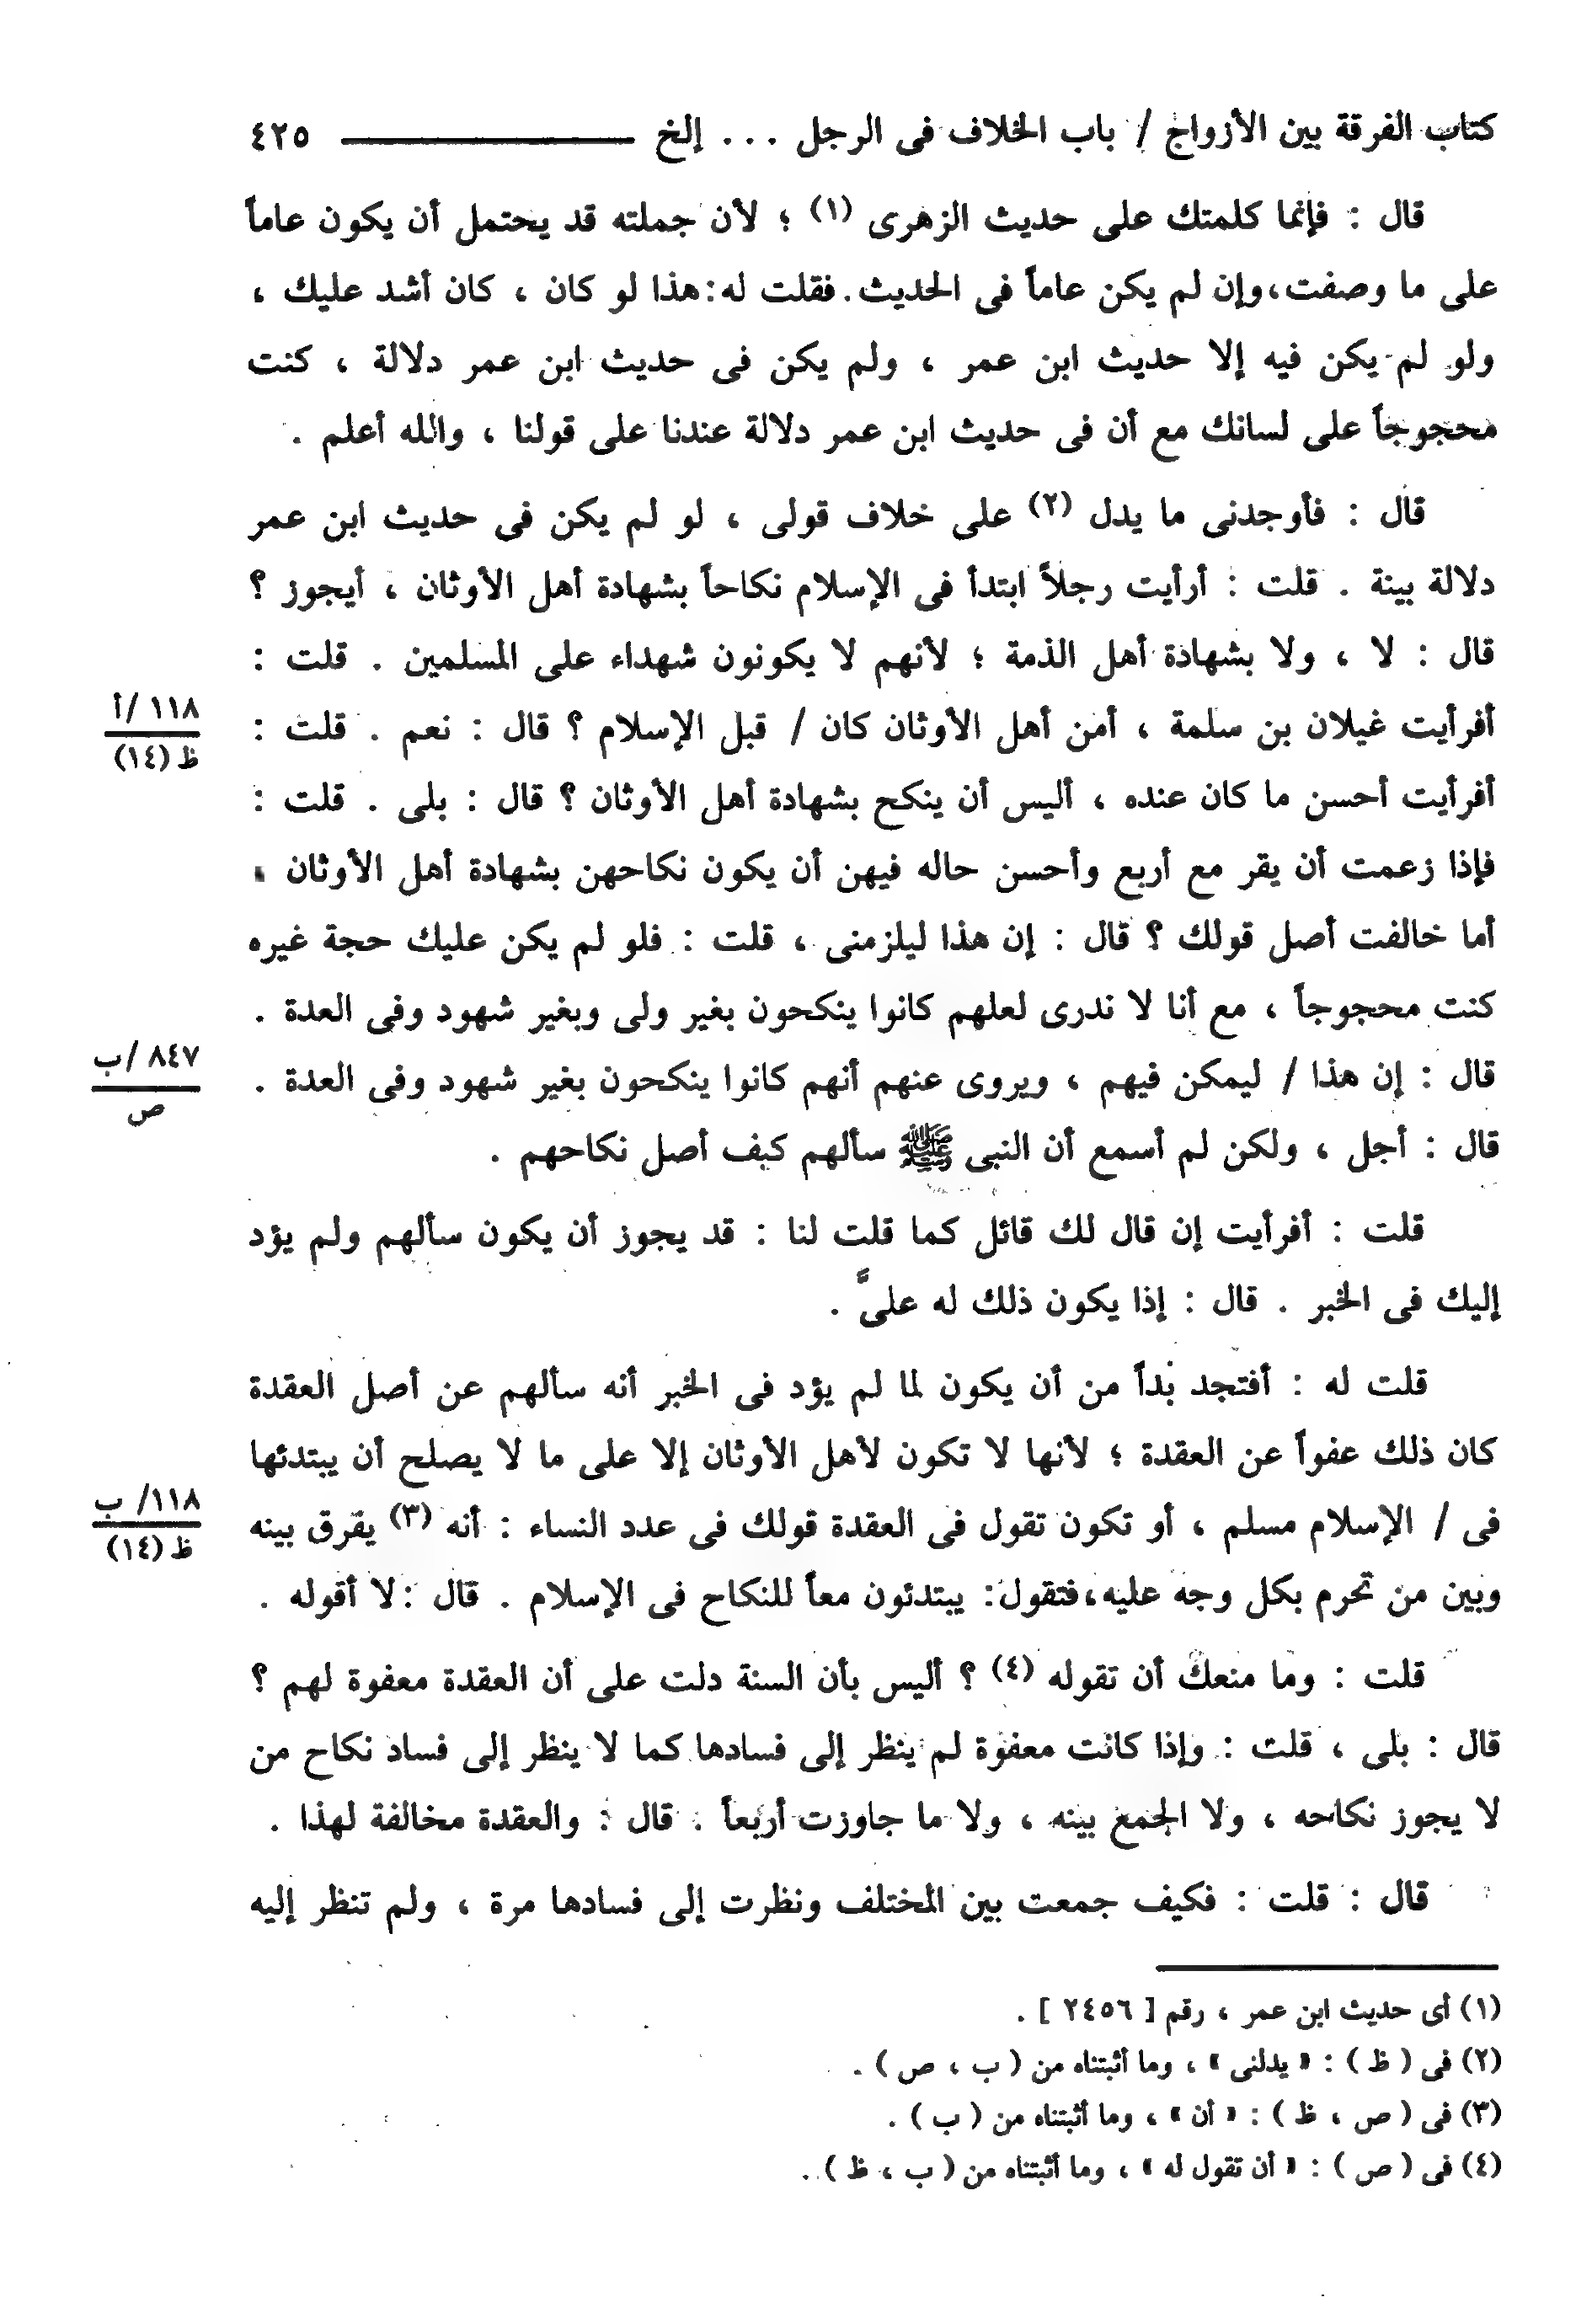 كتاب الفرقة بين الأزواج / باب الخلاف فى الرجل . . . إلخ ــــــــــــــــ ٤٢٥
قال : فإنما كلمتك على حديث الزهرى (١) ؛ لأن جملته قد يحتمل أن يكون عاماً
على ما وصفت،وإن لم يكن عاماً فى الحديث.فقلت له:هذا لو كان ، كان أشد عليك ،
ولو لم يكن فيه إلا حديث ابن عمر ، ولم يكن فى حديث ابن عمر دلالة ، كنت
محجوجاً على لسانك مع أن فى حديث ابن عمر دلالة عندنا على قولنا ، والله أعلم .
قال : فأوجدنى ما يدل (٢) على خلاف قولى ، لو لم يكن فى حديث ابن عمر
دلالة بينة . قلت : أرأيت رجلاً ابتدأ فى الإسلام نكاحاً بشهادة أهل الأوثان ، أيجوز ؟
قال : لا ، ولا بشهادة أهل الذمة ؛ لأنهم لا يكونون شهداء على المسلمين . قلت :
أفرأيت غيلان بن سلمة ، أمن أهل الأوثان كان / قبل الإسلام ؟ قال : نعم . قلت :
١١٨ /أ
ظ (١٤)
أفرأيت أحسن ما كان عنده ، أليس أن ينكح بشهادة أهل الأوثان ؟ قال : بلى . قلت :
فإذا زعمت أن يقر مع أربع وأحسن حاله فيهن أن يكون نكاحهن بشهادة أهل الأوثان ،
أما خالفت أصل قولك ؟ قال : إن هذا ليلزمنى ، قلت : فلو لم يكن عليك حجة غيره
كنت محجوجاً ، مع أنا لا ندرى لعلهم كانوا ينكحون بغير ولى وبغير شهود وفى العدة .
قال : إن هذا / ليمكن فيهم ، ويروى عنهم أنهم كانوا ينكحون بغير شهود وفى العدة .
٨٤٧ /ب
ص
قال : أجل ، ولكن لم أسمع أن النبى ﷺ سألهم كيف أصل نكاحهم .
قلت : أفرأيت إن قال لك قائل كما قلت لنا : قد يجوز أن يكون سألهم ولم يؤد
إليك فى الخبر . قال : إذا يكون ذلك له علىَّ .
قلت له : أفتجد بُداً من أن يكون لما لم يؤد فى الخبر أنه سألهم عن أصل العقدة
كان ذلك عفواً عن العقدة ؛ لأنها لا تكون لأهل الأوثان إلا على ما لا يصلح أن يبتدئها
فى / الإسلام مسلم ، أو تكون تقول فى العقدة قولك فى عدد النساء : أنه (٣) يفرق بينه
١١٨/ ب
ظ (١٤)
وبين من تحرم بكل وجه عليه،فتقول: يبتدئون معاً للنكاح فى الإسلام . قال :لا أقوله .
قلت : وما منعك أن تقوله (٤) ؟ أليس بأن السنة دلت على أن العقدة معفوة لهم ؟
قال : بلى ، قلت : وإذا كانت معفوة لم ينظر إلى فسادها كما لا ينظر إلى فساد نكاح من
لا يجوز نكاحه ، ولا الجمع بينه ، ولا ما جاوزت أربعاً . قال : والعقدة مخالفة لهذا .
قال : قلت : فكيف جمعت بين المختلف ونظرت إلى فسادها مرة ، ولم تنظر إليه
(١) أى حديث ابن عمر ، رقم [ ٢٤٥٦ ] .
(٢) فى ( ظ ) : « يدلنى » ، وما أثبتناه من ( ب ، ص ) .
(٣) فى ( ص ، ظ ) : « أن » ، وما أثبتناه من ( ب ) .
(٤) فى ( ص ) : « أن تقول له » ، وما أثبتناه من ( ب ، ظ ) .